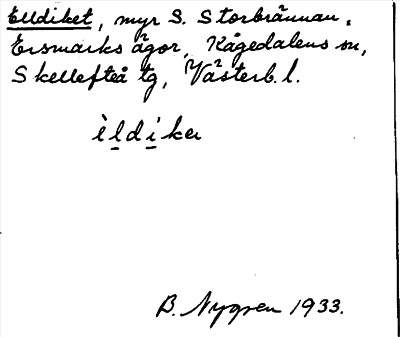 Elldiket, myr S. Storbrännan,
Ersmarks ägor, Kågedalens sn,
Skellefteå tg, Västerb. l.
èldiker
B. Nygren 1933.